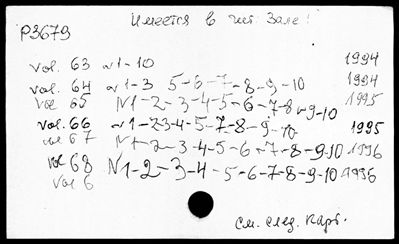 Имеется в чит. Зале!
P3679
vol. 63 N1-10 1994
vol. 64 N1-3 5-6-7-8-9-10 1994
vol 65 N1-2-3-4-5-6-7-8-9-10 1995
vol. 66 N1-23-4-5-7-8-9-10 1995
vol 67 N1-2-3-4-5-6-7-8-9-10 1996
vol 68 N1-2-3-4-5-6-7-8-9-10 1996
vol 6
См. след. карт.